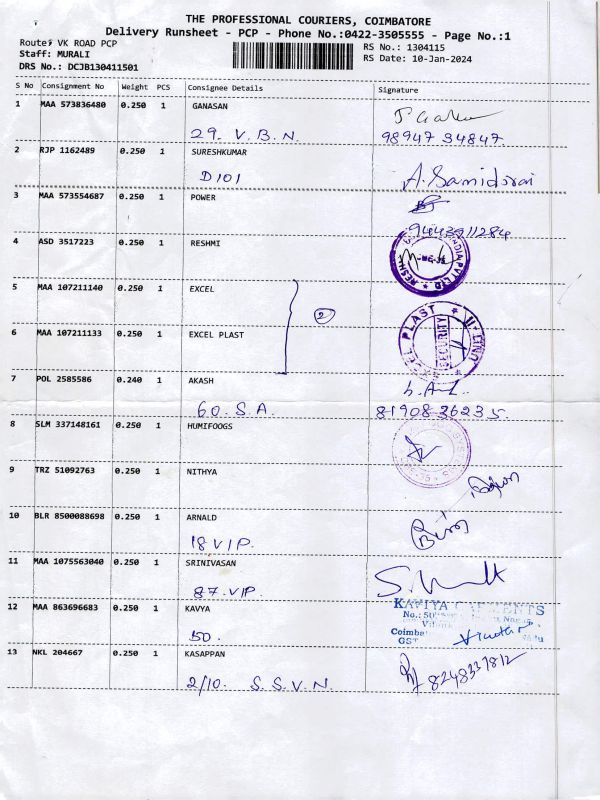 THE PROFESSIONAL COURIERS, COIMBATORE
Delivery Runsheet - PCP - Phone No.:0422-3505555 - Page No.:1
Route: VK ROAD PCP
Staff: MURALI
DRS No.: DCJB130411501
RS No.: 1304115
RS Date: 10-Jan-2024
S No Consignment No Weight PCS Consignee Details Signature
1 MAA 573836480 0.250 1 GANASAN
29. V.B.N. 98947 34847
2 RJP 1162489 0.250 1 SURESHKUMAR
D101 A. Samidorai
3 MAA 573554687 0.250 1 POWER
9443911284
4 ASD 3517223 0.250 1 RESHMI
5 MAA 107211140 0.250 1 EXCEL
2
6 MAA 107211133 0.250 1 EXCEL PLAST
EXCEL PLAST UNIT-II
SECURITY
7 POL 2585586 0.240 1 AKASH
60. S.A 81908 26235
8 SLM 337148161 0.250 1 HUMIFOOGS
9 TRZ 51092763 0.250 1 NITHYA
10 BLR 8500088698 0.250 1 ARNALD
18 VIP.
11 MAA 1075563040 0.250 1 SRINIVASAN
87. VIP.
12 MAA 863696683 0.250 1 KAVYA
50.
KAVIYA
No.: 50
Coimba
GST
13 NKL 204667 0.250 1 KASAPPAN
2/10. S.S.V.N. 8248337812